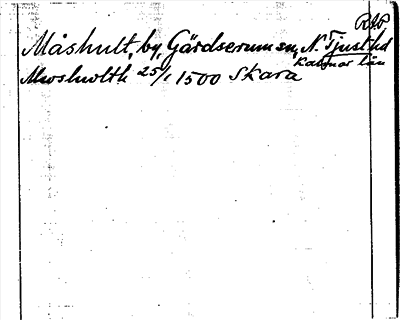 RAP
Måshult, by, Gärdserum sn, N. Tjust hd
Kalmar län
Mosholth 25/1 1500 Skara